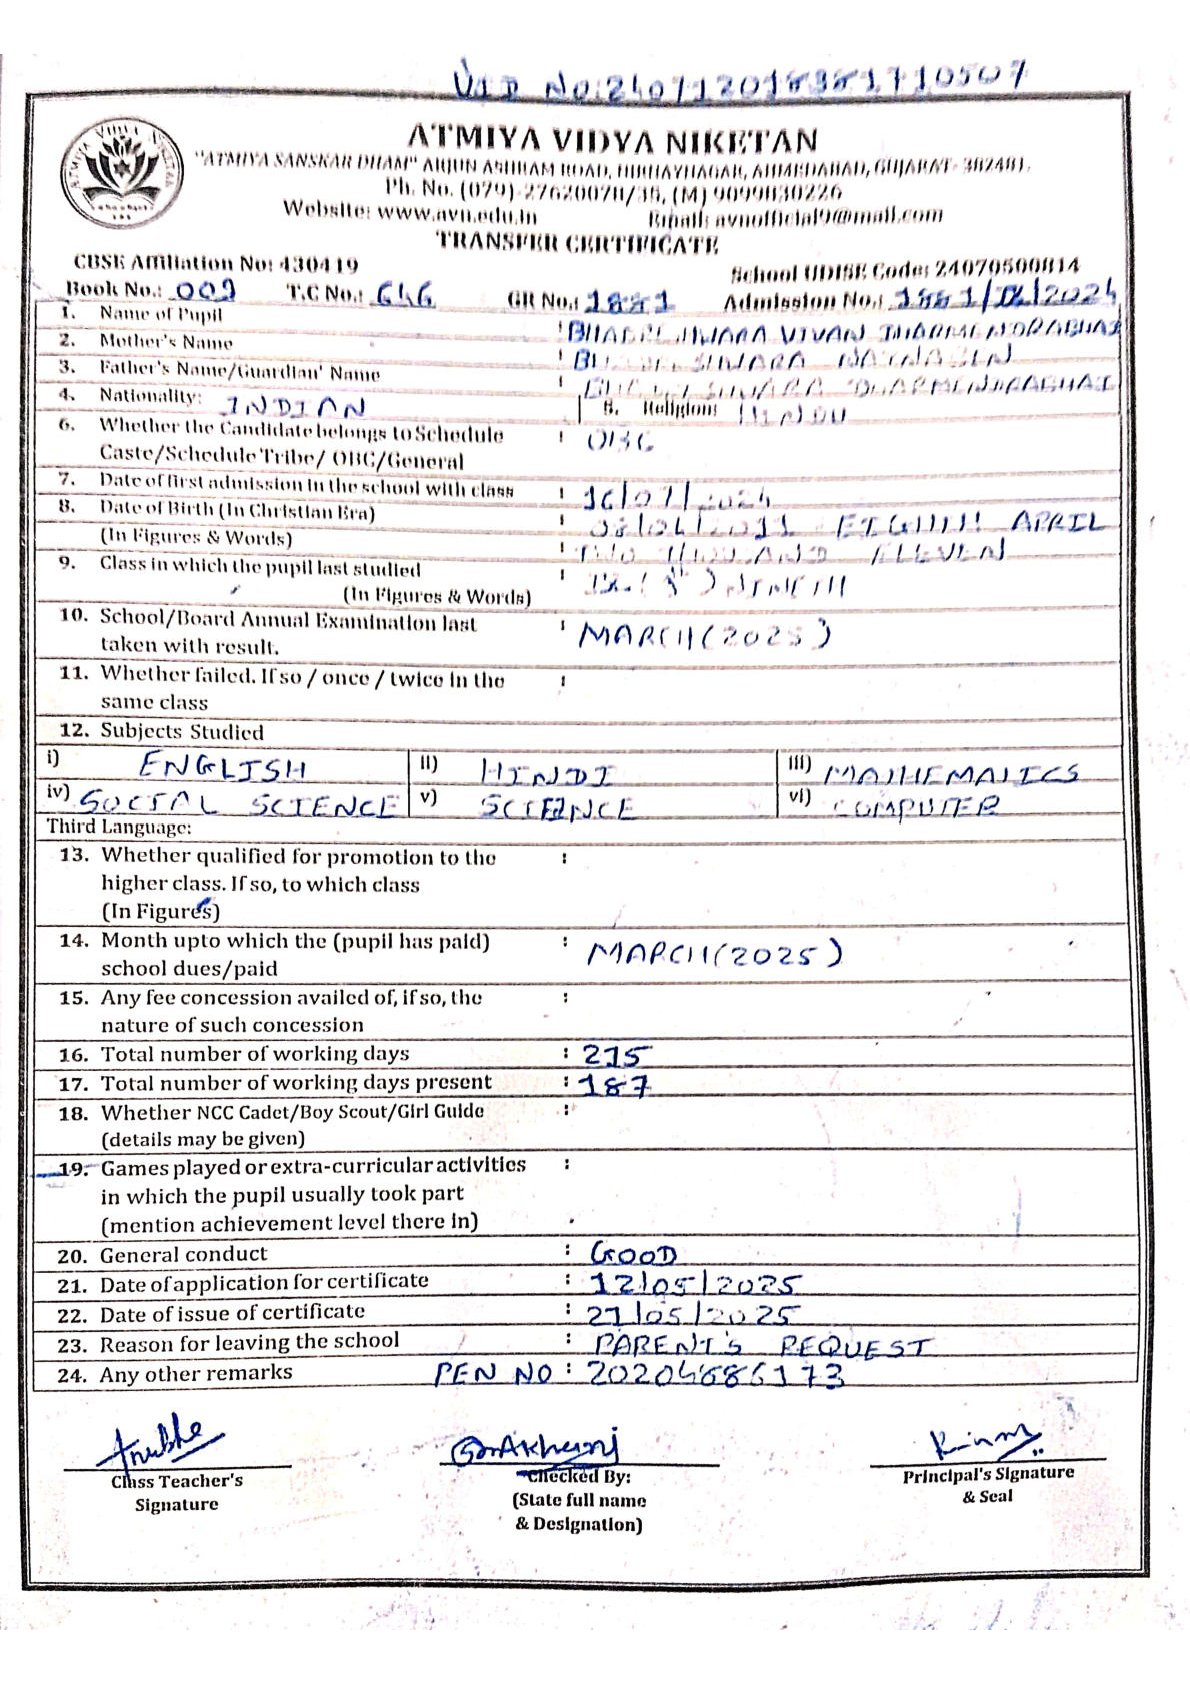 UID No:240712018381710507
ATMIYA VIDYA NIKETAN
"ATMIYA SANSKAR DHAM" ARJUN ASHRAM ROAD, NIRNAYNAGAR, AHMEDABAD, GUJARAT- 382481.
Ph. No. (079)-27620078/35, (M) 9099830226
Website: www.avn.edu.in Email: avnofficial9@mail.com
TRANSFER CERTIFICATE
CBSE Affiliation No: 430419 School UDISE Code: 24070500814
Book No.: 009 T.C No.: 646 GR No.: 1881 Admission No.: 1881/IX/2024
1. Name of Pupil : VIVAN DHARMENDRABHAI
2. Mother's Name :
3. Father's Name/Guardian' Name : DHARMENDRABHAI
4. Nationality: INDIAN 5. Religion: HINDU
6. Whether the Candidate belongs to Schedule : OBC
Caste/Schedule Tribe/ OBC/General
7. Date of first admission in the school with class : 16/07/2024
8. Date of Birth (In Christian Era) : 08/04/2011 EIGHTH APRIL
(In Figures & Words) : TWO THOUSAND ELEVEN
9. Class in which the pupil last studied : NINETH
(In Figures & Words)
10. School/Board Annual Examination last : MARCH(2025)
taken with result.
11. Whether failed. If so / once / twice in the :
same class
12. Subjects Studied
i) ENGLISH ii) HINDI iii) MATHEMATICS
iv) SOCIAL SCIENCE v) SCIENCE vi) COMPUTER
Third Language:
13. Whether qualified for promotion to the :
higher class. If so, to which class
(In Figures)
14. Month upto which the (pupil has paid) : MARCH(2025)
school dues/paid
15. Any fee concession availed of, if so, the :
nature of such concession
16. Total number of working days : 215
17. Total number of working days present : 187
18. Whether NCC Cadet/Boy Scout/Girl Guide :
(details may be given)
19. Games played or extra-curricular activities :
in which the pupil usually took part
(mention achievement level there in)
20. General conduct : GOOD
21. Date of application for certificate : 12/05/2025
22. Date of issue of certificate : 21/05/2025
23. Reason for leaving the school : PARENT'S REQUEST
24. Any other remarks PEN NO : 20204686173
Class Teacher's Checked By: Principal's Signature
Signature (State full name & Seal
& Designation)